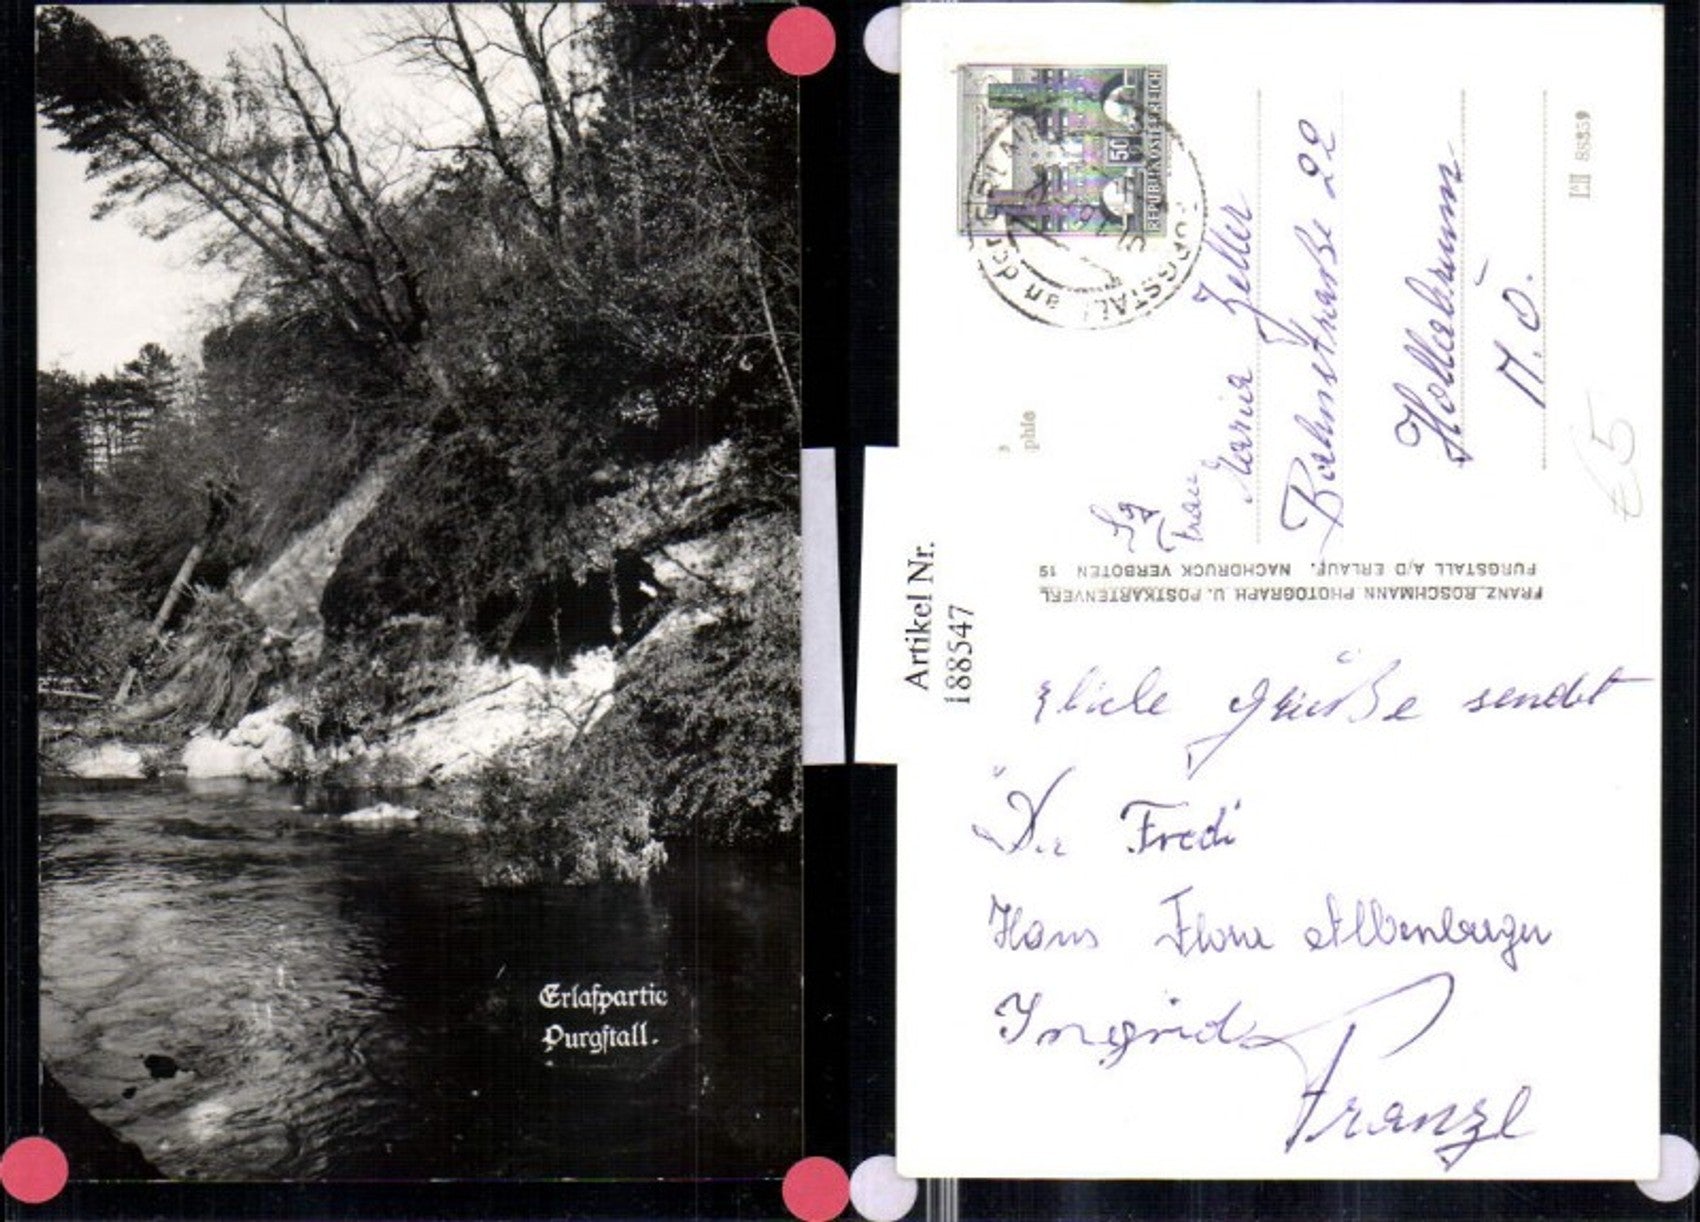 Erlafpartie
Purgstall.
Artikel Nr.
188547
50
REPUBLIK ÖSTERREICH
PURGSTALL an der ERLAF
88859
Frau
Maria Zeller
Bahnstraße 22
Hollabrunn
N.Ö.
€5
FRANZ BOSCHMANN PHOTOGRAPH U. POSTKARTENVERL
PURGSTALL A/D ERLAUF. NACHDRUCK VERBOTEN 19
phie
Grüße sendet
Fredi
Hans Flora
Ingrid
Franzl